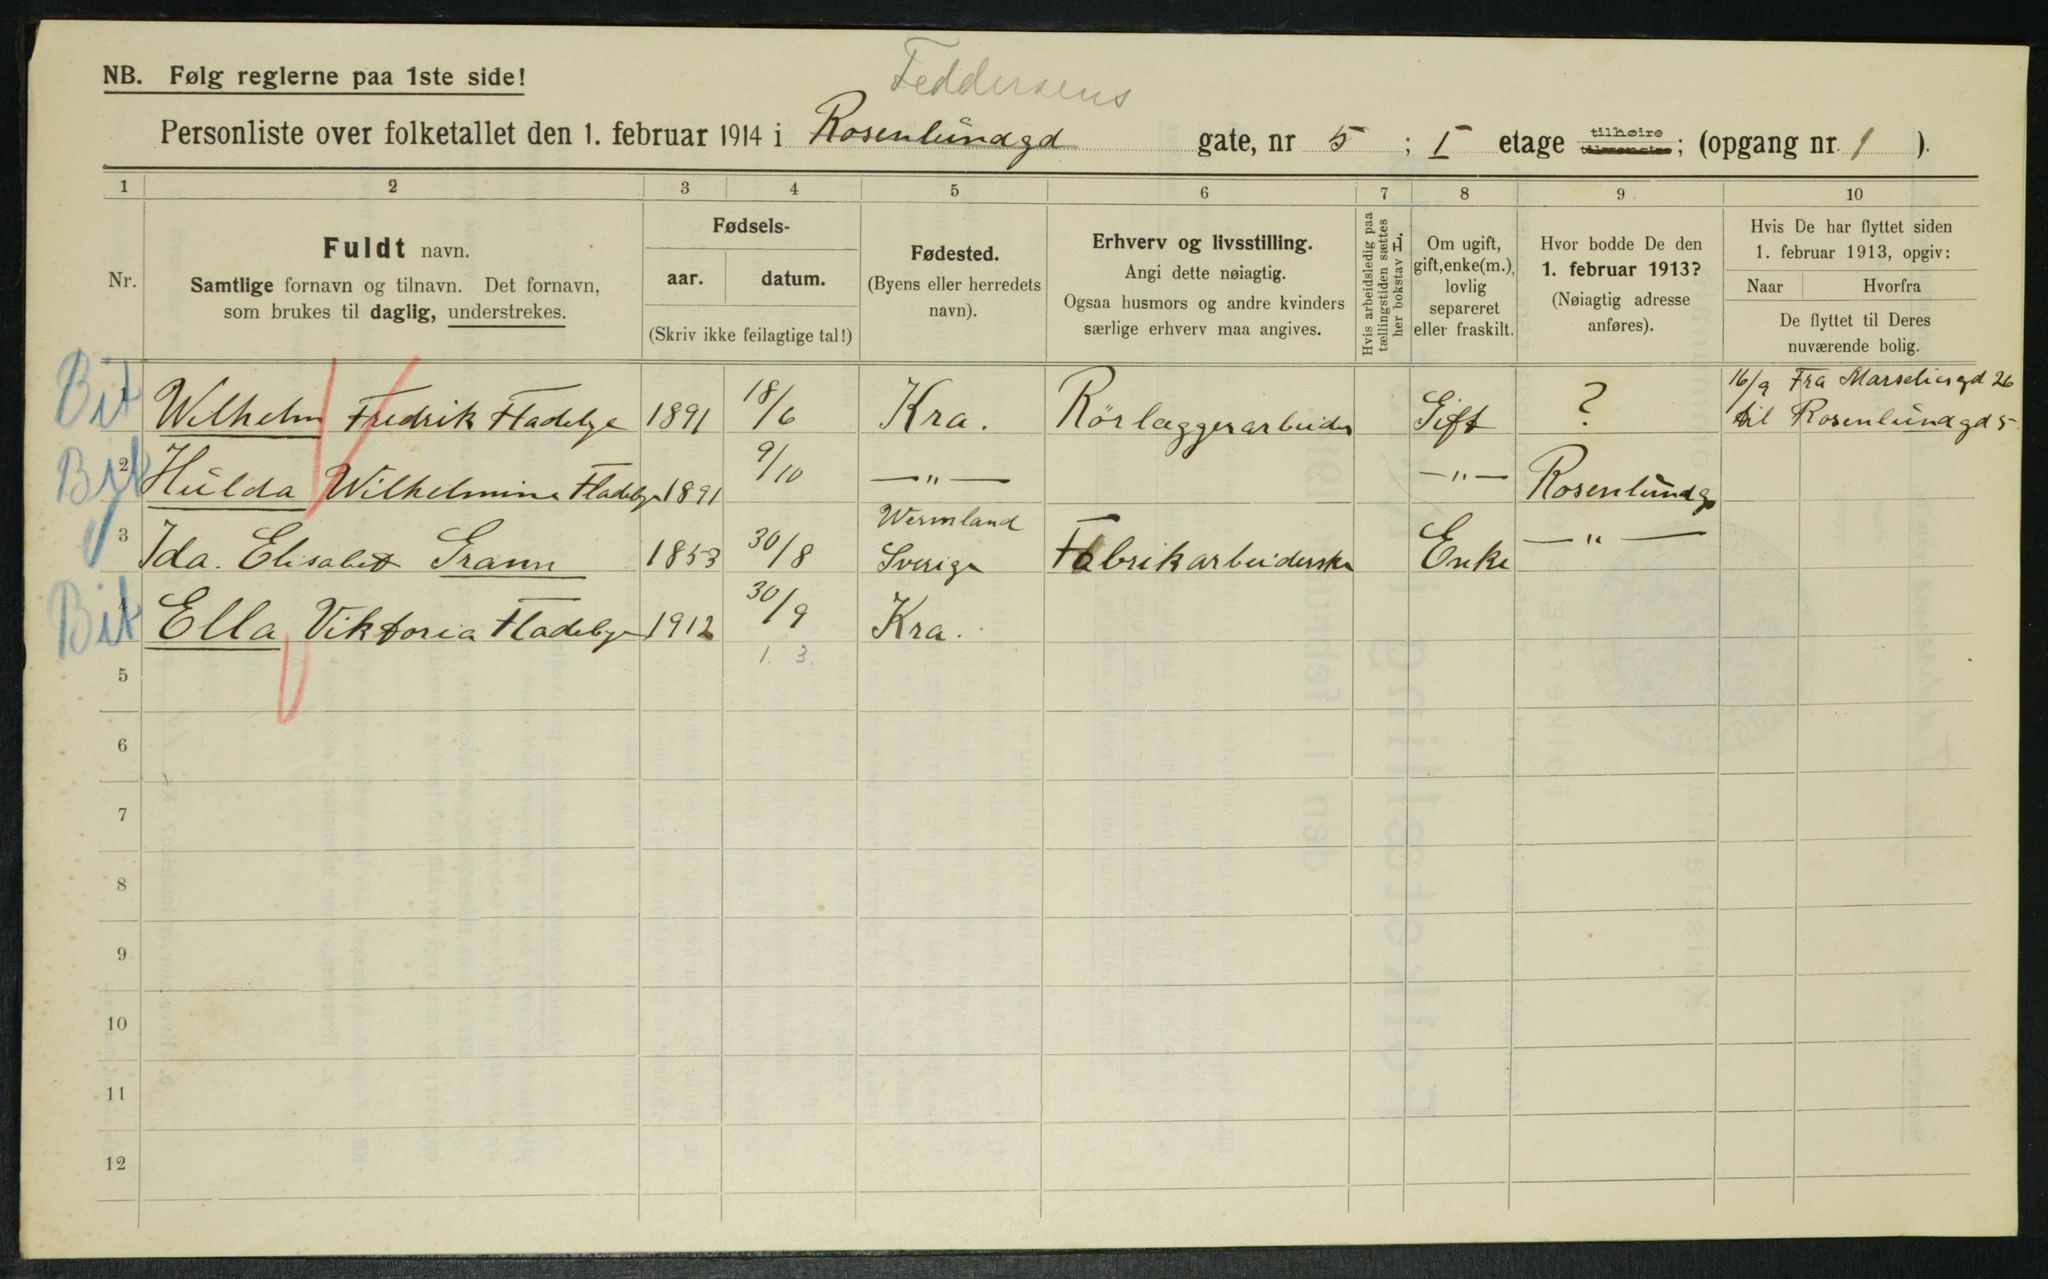 Feddersens
NB. Følg reglerne paa 1ste side!
Personliste over folketallet den 1. februar 1914 i Rosenlundgd gate, nr 5 ; I etage tilhøire tilvenstre; (opgang nr. 1 ).
1 2 3 4 5 6 7 8 9 10
Nr.
Fuldt navn.
Samtlige fornavn og tilnavn. Det fornavn,
som brukes til daglig, understrekes.
Fødsels-
aar. datum.
(Skriv ikke feilagtige tal!)
Fødested.
(Byens eller herredets
navn).
Erhverv og livsstilling.
Angi dette nøiagtig.
Ogsaa husmors og andre kvinders
særlige erhverv maa angives.
Hvis arbeidsledig paa
tællingstiden sættes
her bokstav L.
Om ugift,
gift, enke(m.),
lovlig
separeret
eller fraskilt.
Hvor bodde De den
1. februar 1913?
(Nøiagtig adresse
anføres).
Hvis De har flyttet siden
1. februar 1913, opgiv:
Naar Hvorfra
De flyttet til Deres
nuværende bolig.
Bit 1 Wilhelm Fredrik Fladebye 1891 18/6 Kra. Rörlæggerarbeider Gift ? 16/9 Fra Marseliesgd 26
til Rosenlundgd 5
2 Hulda Wilhelmine Fladebye 1891 9/10 —"— —"— Rosenlundg
3 Ida. Elisabet Grann 1853 30/8 Wermland
Sverige Fabrikarbeiderske Enke —"—
Bit 4 Ella Viktoria Fladebye 1912 30/9 Kra.
1. 3.
5
6
7
8
9
10
11
12